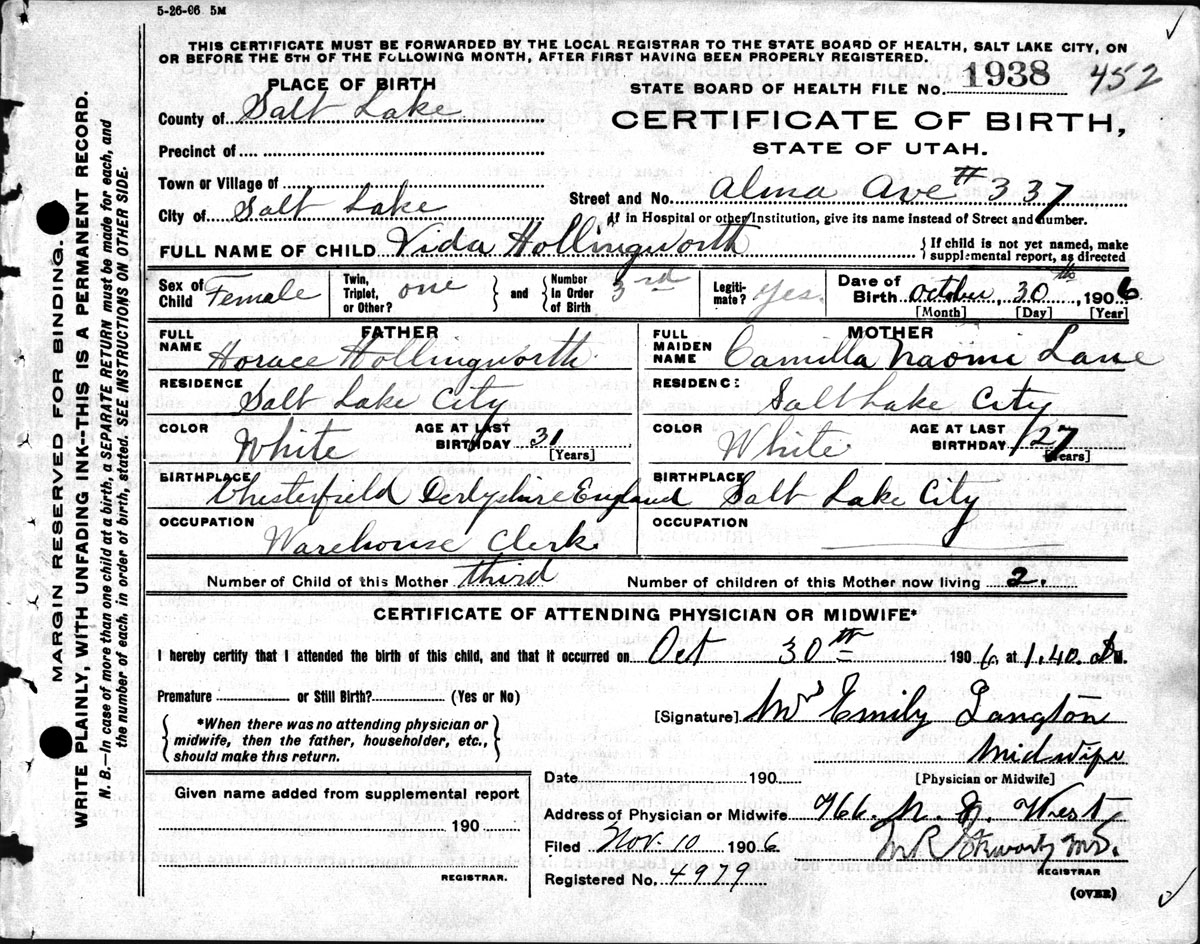 5-26-06 5M
THIS CERTIFICATE MUST BE FORWARDED BY THE LOCAL REGISTRAR TO THE STATE BOARD OF HEALTH, SALT LAKE CITY, ON
OR BEFORE THE 5TH OF THE FOLLOWING MONTH, AFTER FIRST HAVING BEEN PROPERLY REGISTERED.
PLACE OF BIRTH
STATE BOARD OF HEALTH FILE No. 1938 452
County of Salt Lake
CERTIFICATE OF BIRTH,
STATE OF UTAH.
Precinct of
Town or Village of
Street and No. Alma Ave # 337
City of Salt Lake
If in Hospital or other Institution, give its name instead of Street and Number.
FULL NAME OF CHILD Vida Hollingworth
{ If child is not yet named, make
supplemental report, as directed
Sex of Child Female
Twin, Triplet, or Other? one } and { Number in Order of Birth 3rd
Legitimate? Yes.
Date of Birth October, 30th, 1906
[Month] [Day] [Year]
FATHER
FULL NAME Horace Hollingworth
RESIDENCE Salt Lake City
COLOR White AGE AT LAST BIRTHDAY 31 [Years]
BIRTHPLACE Chesterfield Derbyshire England
OCCUPATION Warehouse Clerk
MOTHER
FULL MAIDEN NAME Camilla Naomi Lane
RESIDENCE Salt Lake City
COLOR White AGE AT LAST BIRTHDAY 27 [Years]
BIRTHPLACE Salt Lake City
OCCUPATION
Number of Child of this Mother third Number of children of this Mother now living 2.
CERTIFICATE OF ATTENDING PHYSICIAN OR MIDWIFE*
I hereby certify that I attended the birth of this child, and that it occurred on Oct 30th 1906, at 1.40 M.
Premature or Still Birth? (Yes or No)
{ *When there was no attending physician or
midwife, then the father, householder, etc.,
should make this return. }
[Signature] Mrs Emily Langton
Midwife
[Physician or Midwife]
Given name added from supplemental report
190
REGISTRAR.
Date 190
Address of Physician or Midwife 766. N. West
Filed Nov. 10 1906
REGISTRAR
Registered No. 4979
(OVER)
MARGIN RESERVED FOR BINDING.
WRITE PLAINLY, WITH UNFADING INK--THIS IS A PERMANENT RECORD.
N. B.--In case of more than one child at a birth, a SEPARATE RETURN must be made for each, and
the number of each, in order of birth, stated. SEE INSTRUCTIONS ON OTHER SIDE.